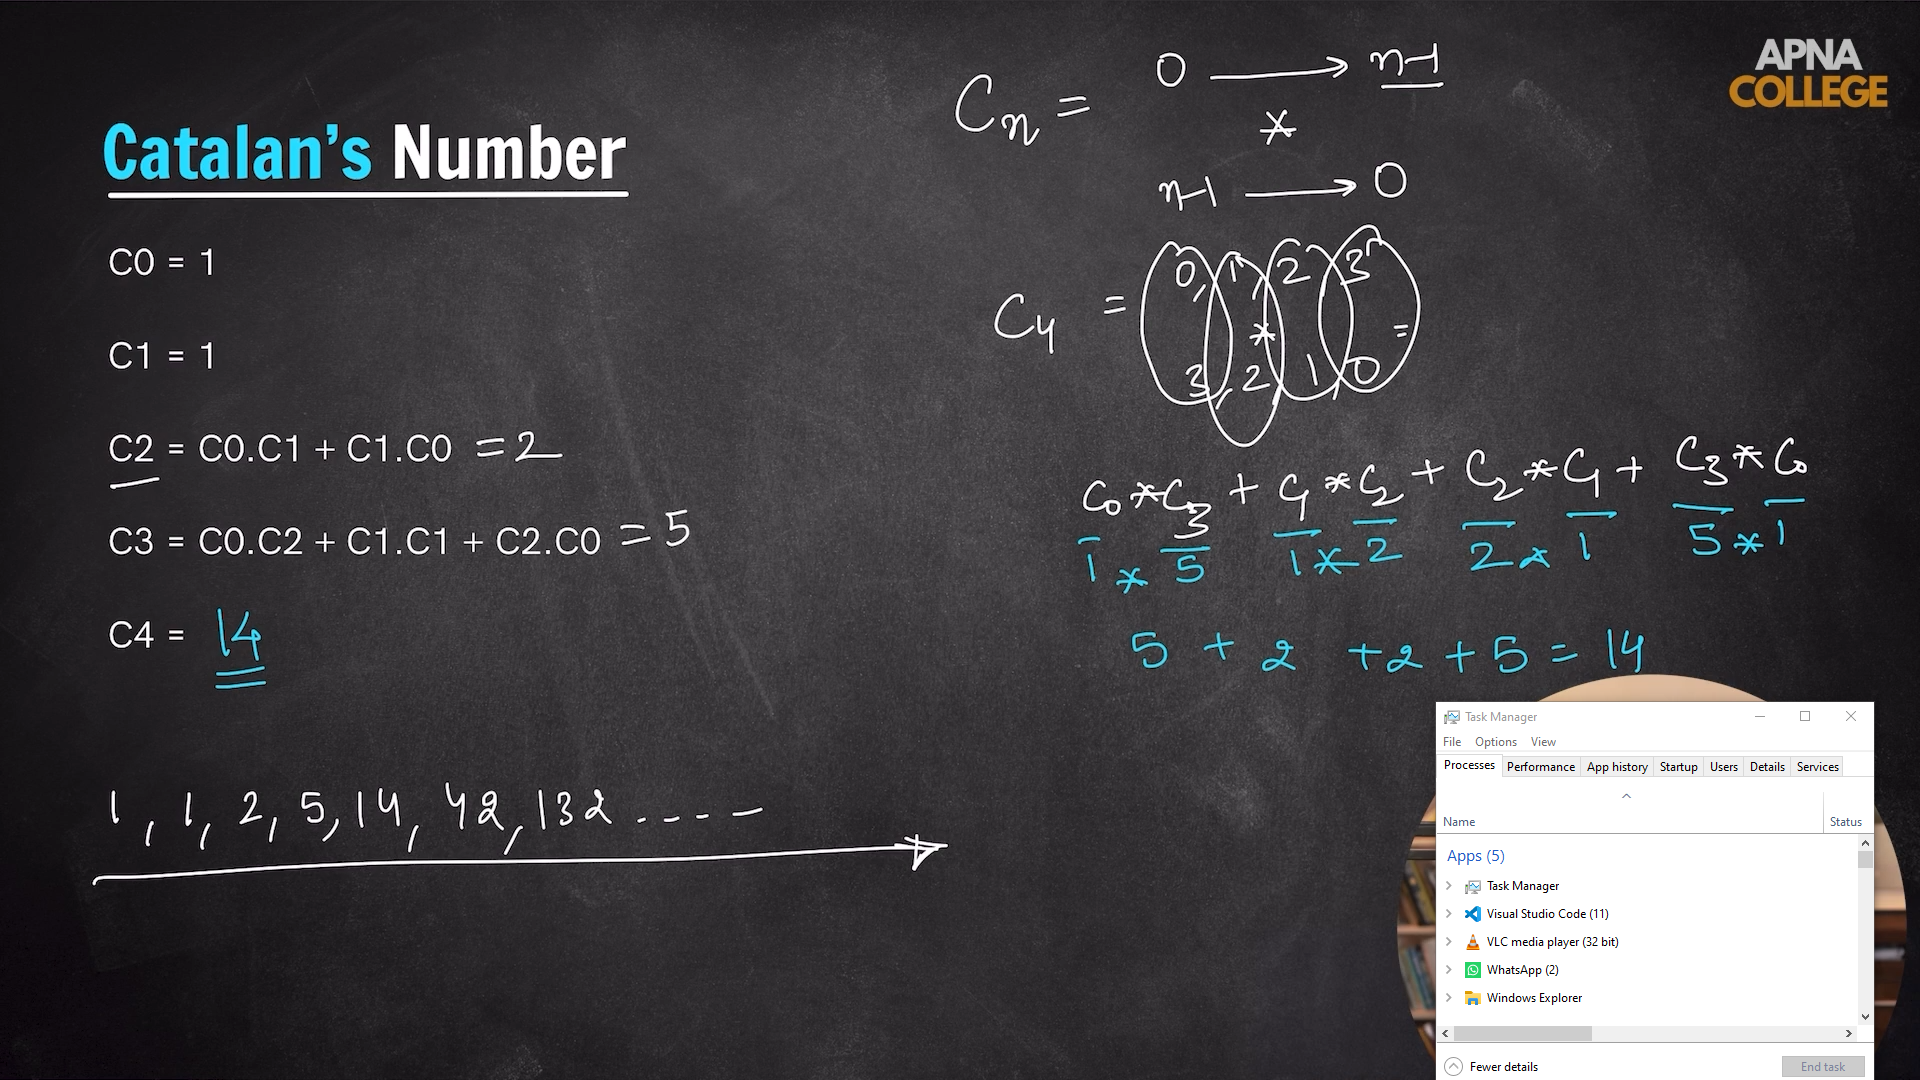 APNA
COLLEGE
Catalan's Number
C0 = 1
C1 = 1
C2 = C0.C1 + C1.C0 = 2
C3 = C0.C2 + C1.C1 + C2.C0 = 5
C4 = 14
1, 1, 2, 5, 14, 42, 132 ....–
Cn = 0 → n-1
*
n-1 → 0
C4 = 0, 1, 2 3
* =
3, 2 1 0
C0 * C3 + C1 * C2 + C2 * C1 + C3 * C0
1 * 5 1 * 2 2 * 1 5 * 1
5 + 2 + 2 + 5 = 14
Task Manager
File Options View
Processes Performance App history Startup Users Details Services
Name Status
Apps (5)
Task Manager
Visual Studio Code (11)
VLC media player (32 bit)
WhatsApp (2)
Windows Explorer
Fewer details End task